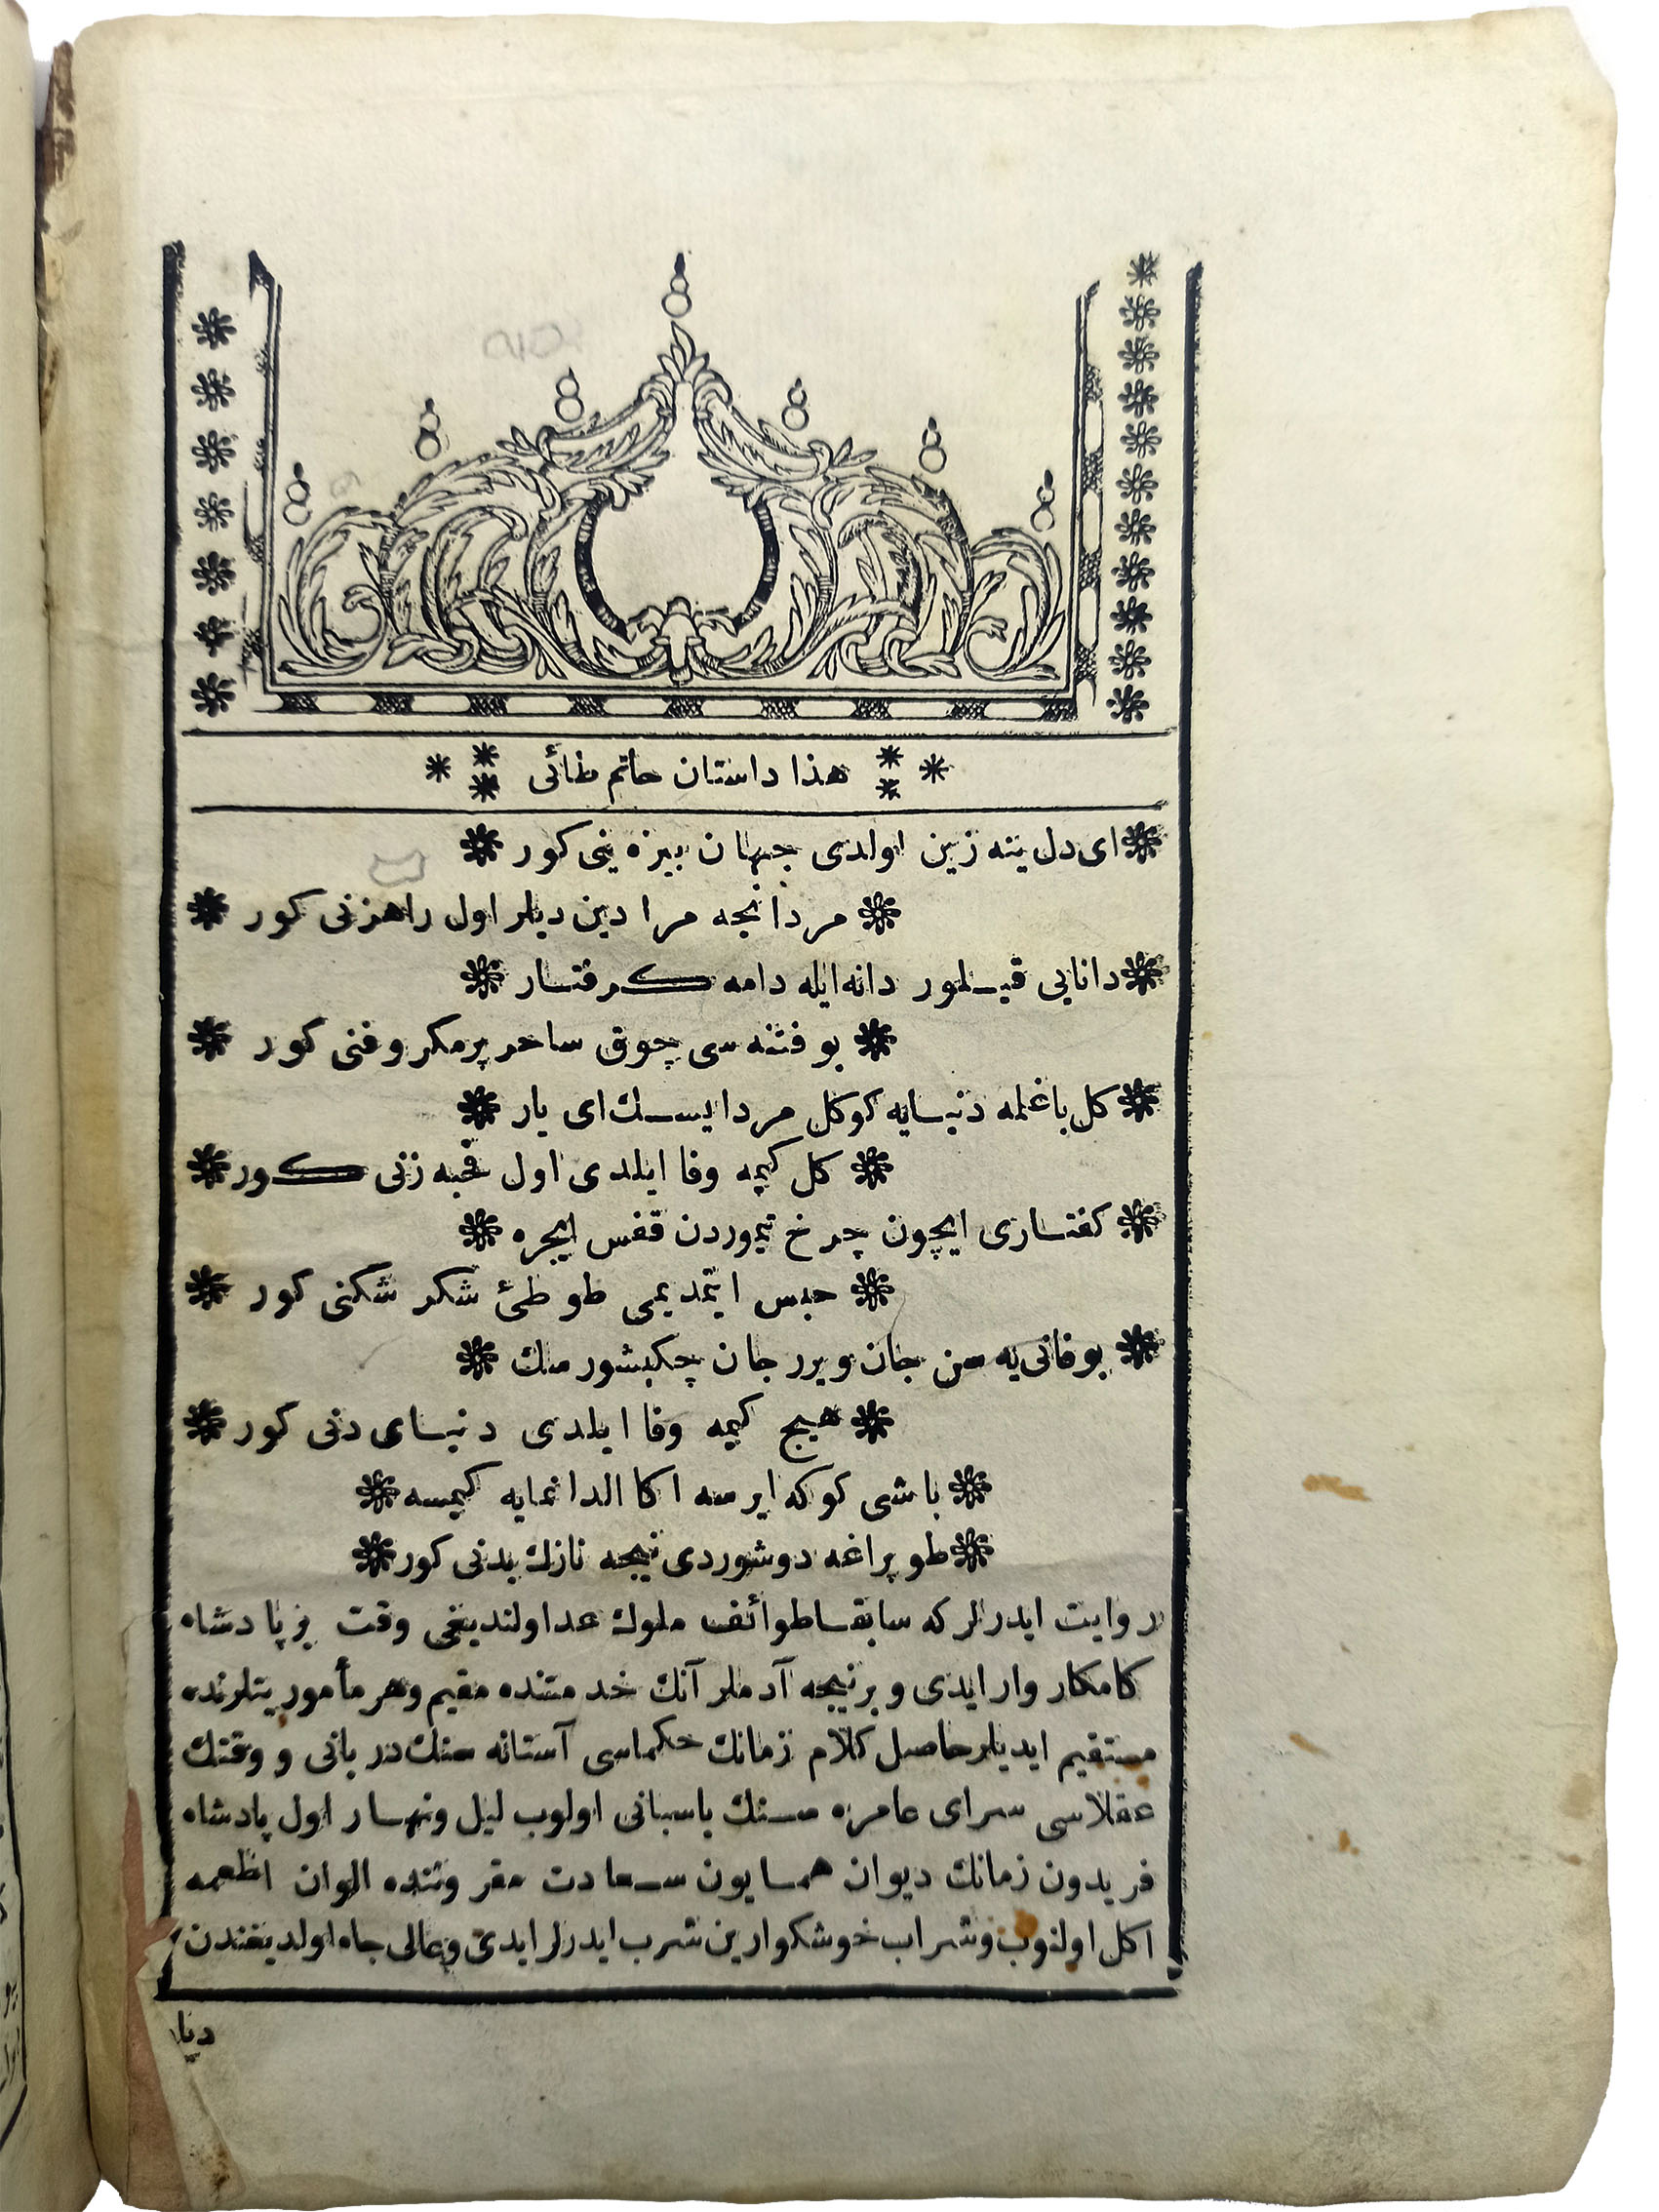 هذا داستان حاتم طائی
ای دل ینه زین اولدی جهان بیزه ینی کور
مردانجه مرادین دیلر اول راهزنی کور
دانایی قیلور دانه ایله دامه کرفتار
بو فتنه سی چوق ساحر پرمکر و فنی کور
کل باغلمه دنیایه کوکل مرد ایسك ای یار
کل کیمه وفا ایلدی اول قحبه زنی کور
کفتاری ایچون چرخ تیموردن قفس ایچره
حبس ایتمدیمی طوطئ شکر شکنی کور
بو فانی یه سن جان ویرر جان چکیشورسك
هیچ کیمه وفا ایلدی دنیای دنی کور
باشی کوکه ایرسه اکا الدانمایه کیمسه
طوپراغه دوشوردی نیجه نازك بدنی کور
روایت ایدرلر که سابقا طوائف ملوك عد اولندیغی وقت بر پادشاه
کامکار وار ایدی و بر نیجه آدملر آنك خدمتنده مقیم و هر مأموریتلرنده
مستقیم ایدیلر حاصل کلام زمانك حکماسی آستانه سنك دربانی و وقتك
عقلاسی سرای عامره سنك باسبانی اولوب لیل و نهار اول پادشاه
فریدون زمانك دیوان همایون سعادت مقروننده الوان اطعمه
اکل اولنوب و شراب خوشکوارین شرب ایدرلر ایدی و عالی جاه اولدیغندن
دنیا